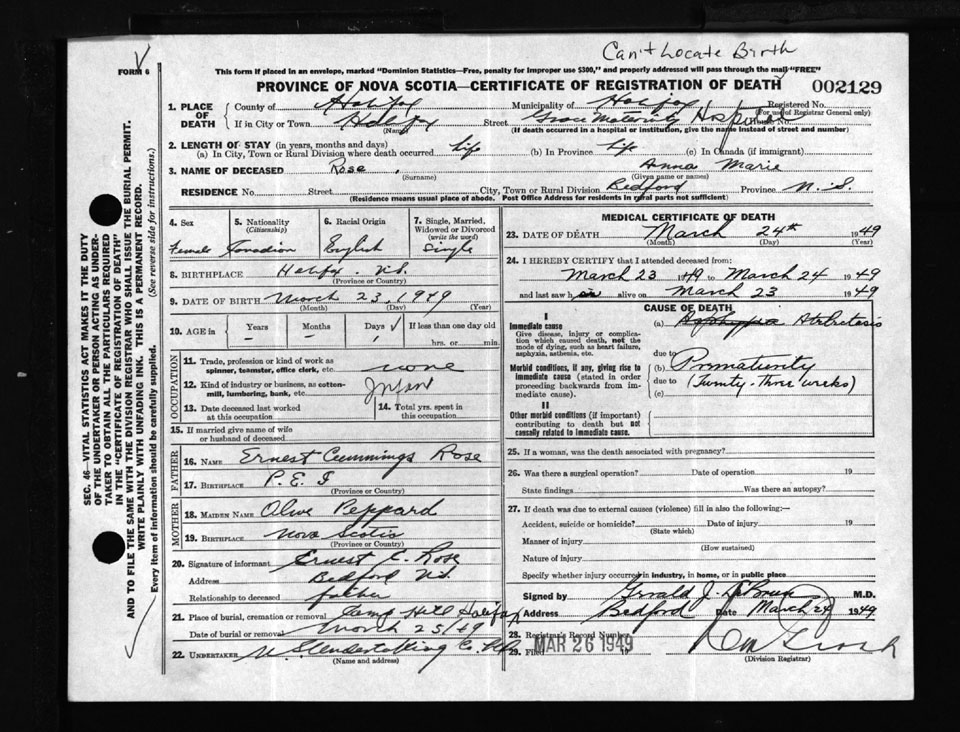 Can't Locate Birth
FORM 6
This form if placed in an envelope, marked "Dominion Statistics—Free, penalty for improper use $300," and properly addressed will pass through the mail "FREE"
PROVINCE OF NOVA SCOTIA—CERTIFICATE OF REGISTRATION OF DEATH 002129
1. PLACE OF DEATH County of Halifax Municipality of Halifax Registered No.
(For use of Registrar General only)
If in City or Town Halifax Street Grace Maternity Hospital
(Name) (If death occurred in a hospital or institution, give the name instead of street and number)
2. LENGTH OF STAY (in years, months and days)
(a) In City, Town or Rural Division where death occurred life (b) In Province life (c) In Canada (if immigrant)
3. NAME OF DECEASED Rose, Anna Marie
(Surname) (Given name or names)
RESIDENCE No. Street City, Town or Rural Division Bedford Province N.S.
(Residence means usual place of abode. Post Office Address for residents in rural parts not sufficient)
4. Sex Female
5. Nationality (Citizenship) Canadian
6. Racial Origin English
7. Single, Married, Widowed or Divorced (write the word) Single
8. BIRTHPLACE Halifax N.S.
(Province or Country)
9. DATE OF BIRTH March 23, 1949
(Month) (Day) (Year)
10. AGE in Years Months Days If less than one day old
– 1 hrs. or min.
OCCUPATION
11. Trade, profession or kind of work as spinner, teamster, office clerk, etc. none
12. Kind of industry or business, as cotton-mill, lumbering, bank, etc. Infant
13. Date deceased last worked at this occupation
14. Total yrs. spent in this occupation
15. If married give name of wife or husband of deceased
FATHER
16. NAME Ernest Cummings Rose
17. BIRTHPLACE P.E.I
(Province or Country)
MOTHER
18. MAIDEN NAME Olive Peppard
19. BIRTHPLACE Nova Scotia
(Province or Country)
20. Signature of informant Ernest C. Rose
Address Bedford N.S.
Relationship to deceased father
21. Place of burial, cremation or removal Camp Hill Halifax
Date of burial or removal March 25/49
22. UNDERTAKER N.S. Undertaking Co.
(Name and address)
MEDICAL CERTIFICATE OF DEATH
23. DATE OF DEATH March 24th 1949
(Month) (Day) (Year)
24. I HEREBY CERTIFY that I attended deceased from:
March 23 1949 to March 24 1949
and last saw h alive on March 23 1949
CAUSE OF DEATH
I
Immediate cause
Give disease, injury or complication which caused death, not the mode of dying, such as heart failure, asphyxia, asthenia, etc.
(a) Asphyxia Atelectasis
due to
Morbid conditions, if any, giving rise to immediate cause (stated in order proceeding backwards from immediate cause).
(b) Prematurity
due to (Twenty-three weeks)
(c)
II
Other morbid conditions (if important) contributing to death but not causally related to immediate cause.
25. If a woman, was the death associated with pregnancy?
26. Was there a surgical operation? Date of operation 19
State findings Was there an autopsy?
27. If death was due to external causes (violence) fill in also the following:—
Accident, suicide or homicide? Date of injury 19
(State which)
Manner of injury
(How sustained)
Nature of injury
Specify whether injury occurred in industry, in home, or in public place
Signed by Gerald J. M.D.
Address Bedford Date March 24 1949
28. Registrar's Record Number
29. Filed MAR 26 1949 19
(Division Registrar)
SEC. 46—VITAL STATISTICS ACT MAKES IT THE DUTY
OF THE UNDERTAKER OR PERSON ACTING AS UNDER-
TAKER TO OBTAIN ALL THE PARTICULARS REQUIRED
IN THE "CERTIFICATE OF REGISTRATION OF DEATH"
AND TO FILE THE SAME WITH THE DIVISION REGISTRAR WHO SHALL ISSUE THE BURIAL PERMIT.
WRITE PLAINLY WITH UNFADING INK. THIS IS A PERMANENT RECORD.
Every item of information should be carefully supplied. (See reverse side for instructions.)